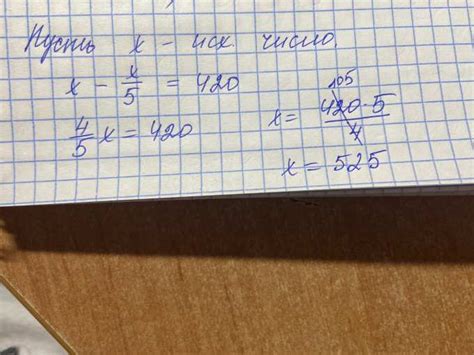 Пусть x - иск. число.
x - x/5 = 420
4/5 x = 420
105
x = 420·5/4
x = 525